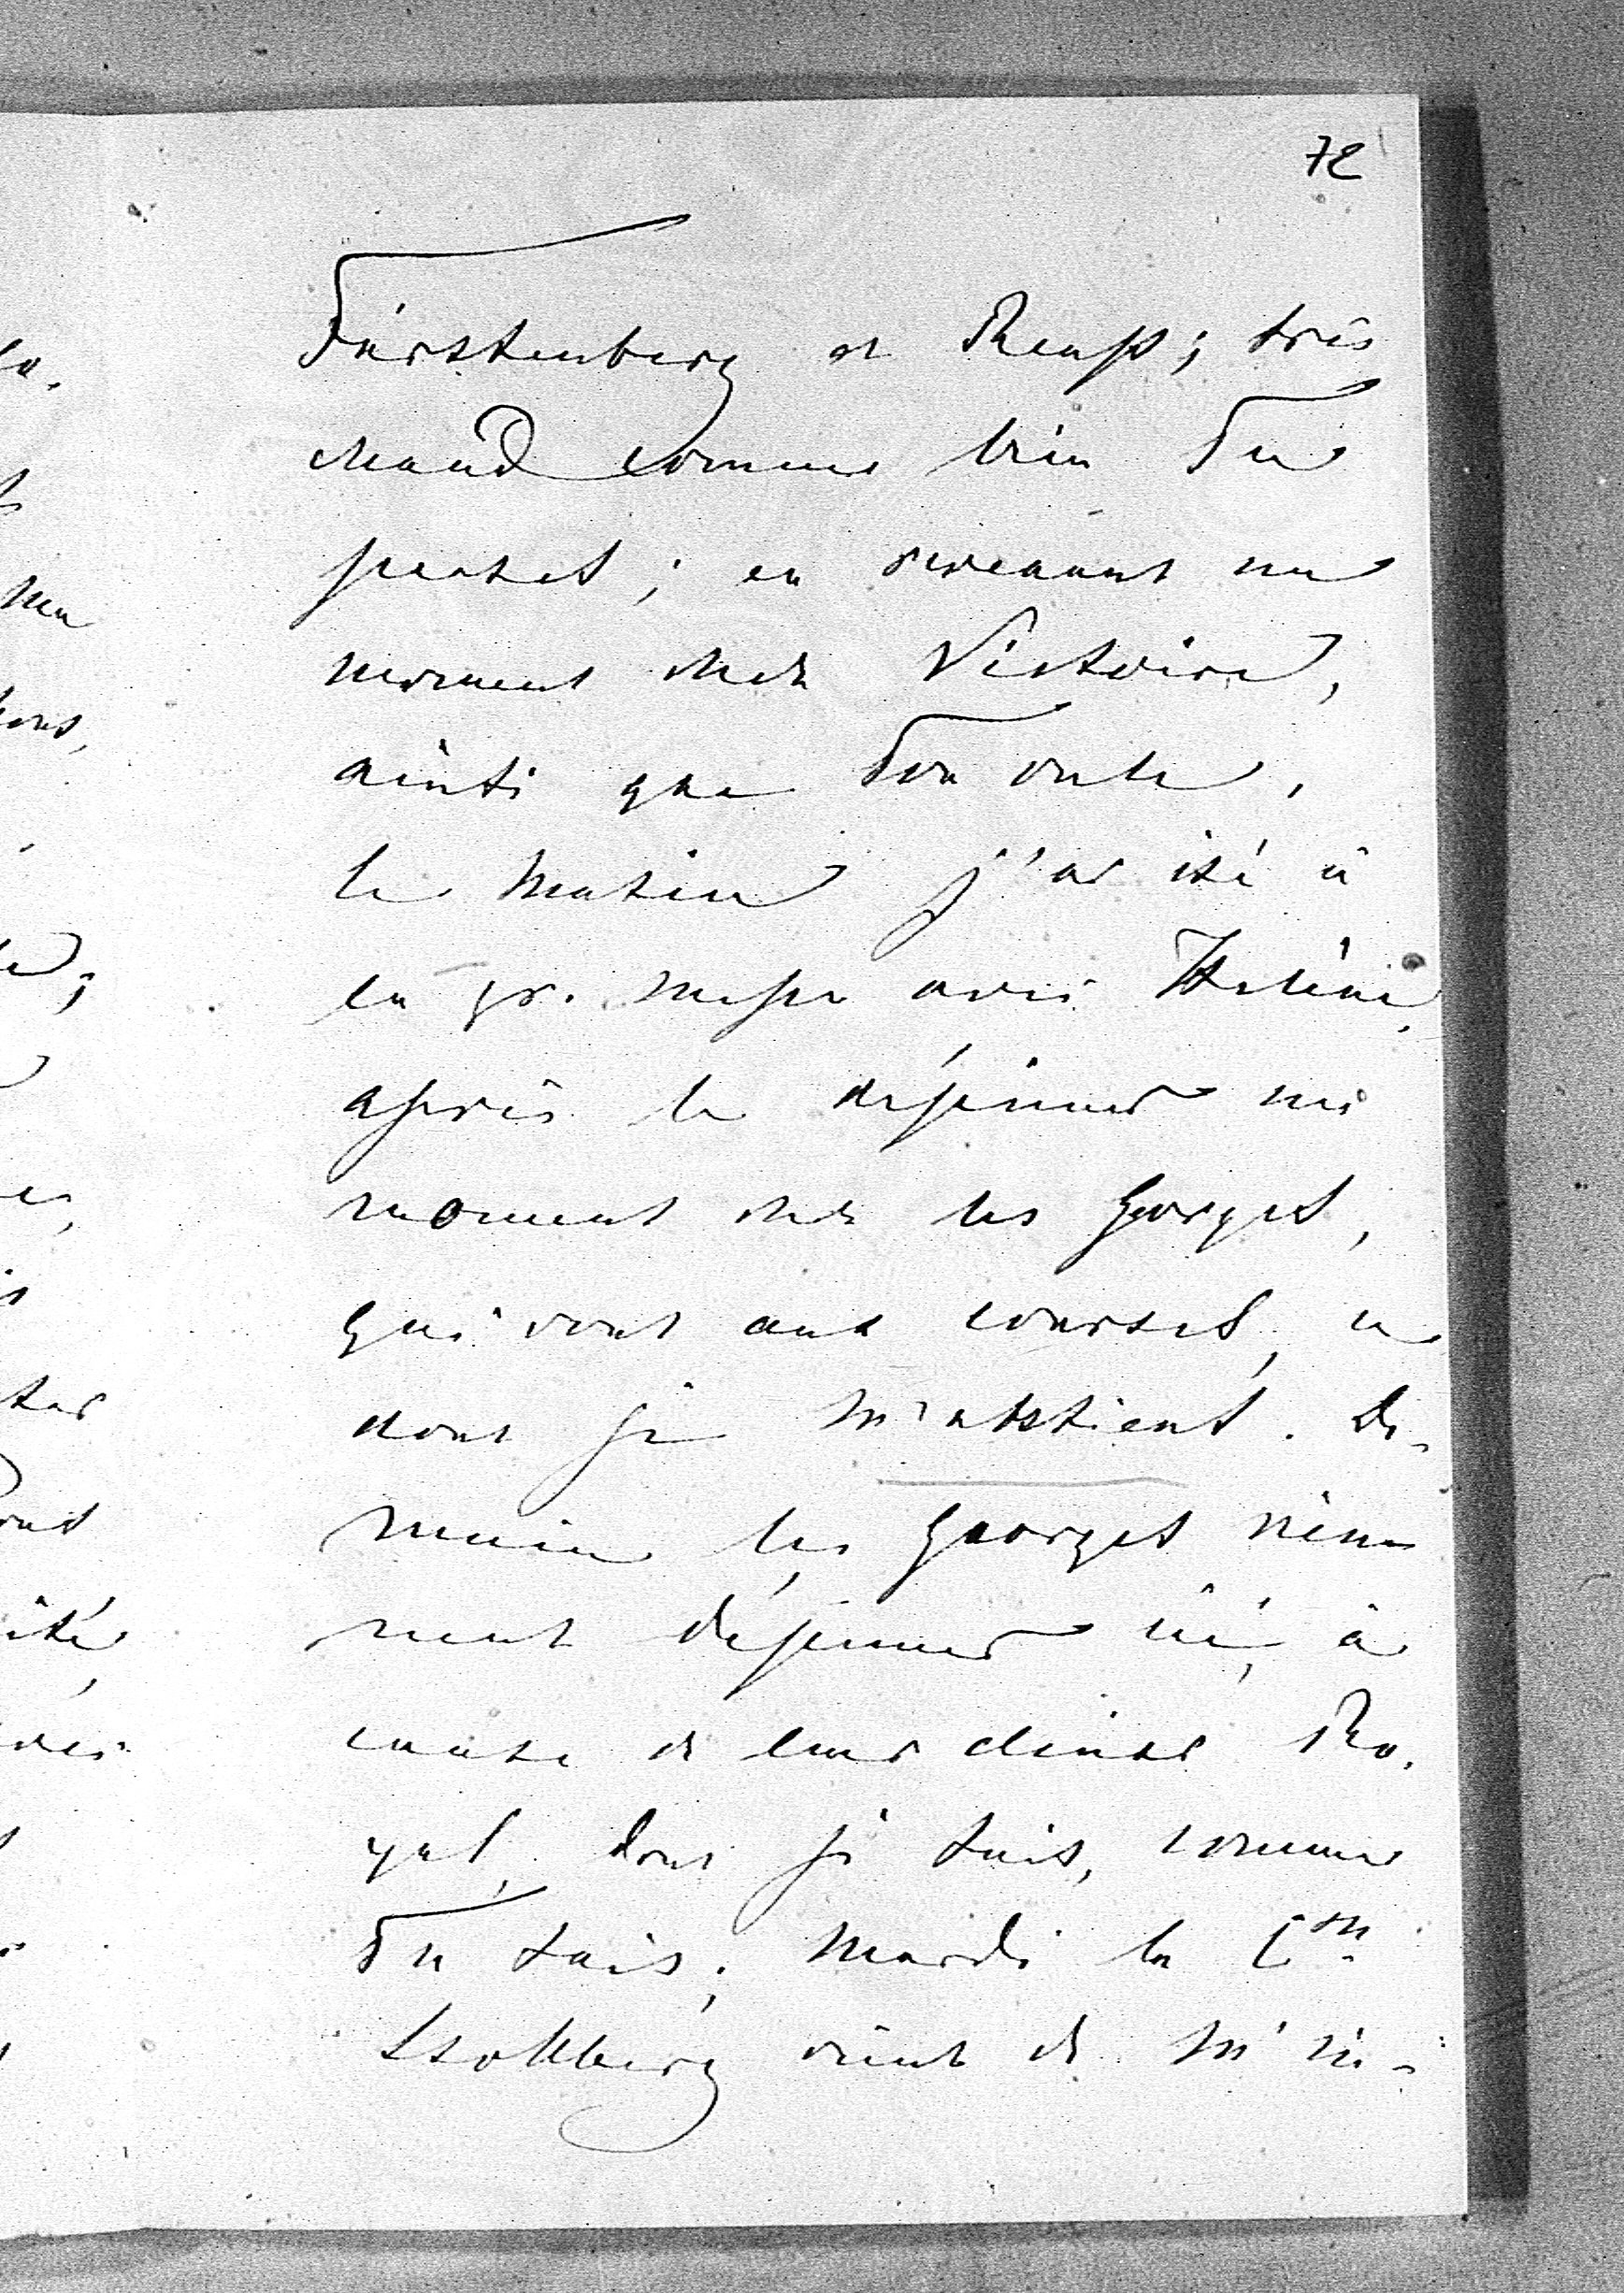 72
Fürstenberg et Reuß; très
chaud comme bien Tu
penses; en revenant un
moment chez Victoire,
ainsi que Ton oncle,
le matin j'ai été à
la gr. messe avec Helène,
après le déjeuner un
moment chez les Georges,
qui vont aux courses, ce
dont je m'abstiens. De-
main les Georges vien-
nent déjeuner ici, à
cause de leur diner Ro-
yal, dont je suis, comme
Tu sais; Mardi la C^sse
Stollberg vient de m'in-